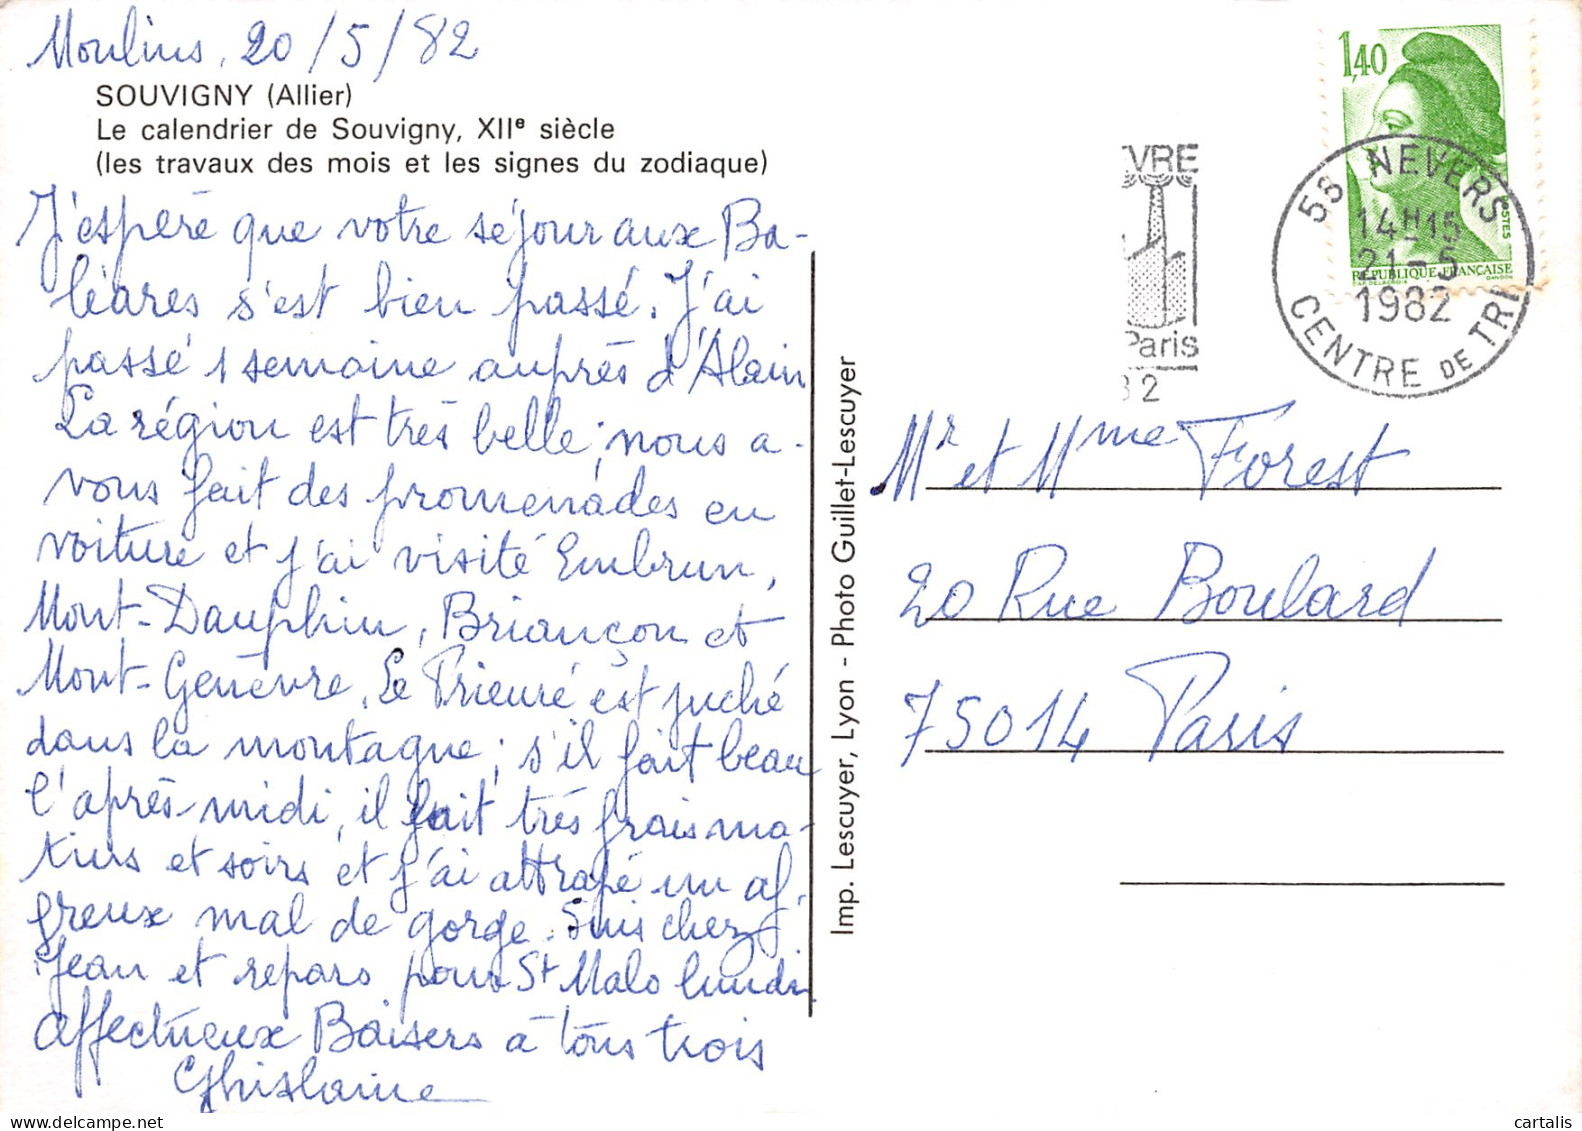 Moulins, 20/5/82
SOUVIGNY (Allier)
Le calendrier de Souvigny, XIIᵉ siècle
(les travaux des mois et les signes du zodiaque)
J'espère que votre séjour aux Ba-
léares s'est bien passé. J'ai
passé 1 semaine auprès d'Alain
La région est très belle; nous a-
vons fait des promenades en
voiture et j'ai visité Embrun,
Mont-Dauphin, Briançon et
Mont-Genèvre. Le Prieuré est juché
dans la montagne; s'il fait beau
l'après-midi, il fait très frais ma-
tins et soirs et j'ai attrapé un af-
freux mal de gorge. Suis chez
Jean et repars pour St Malo lundi
Affectueux Baisers à tous trois
Ghislaine
Imp. Lescuyer, Lyon - Photo Guillet-Lescuyer
VRE
Paris
82
1,40
POSTES
RÉPUBLIQUE FRANÇAISE
D'AP. DELACROIX GANDON
58 NEVERS
14H15
21-5
1982
CENTRE DE TRI
Mr et Mme Forest
20 Rue Boulard
75014 Paris
cartalis